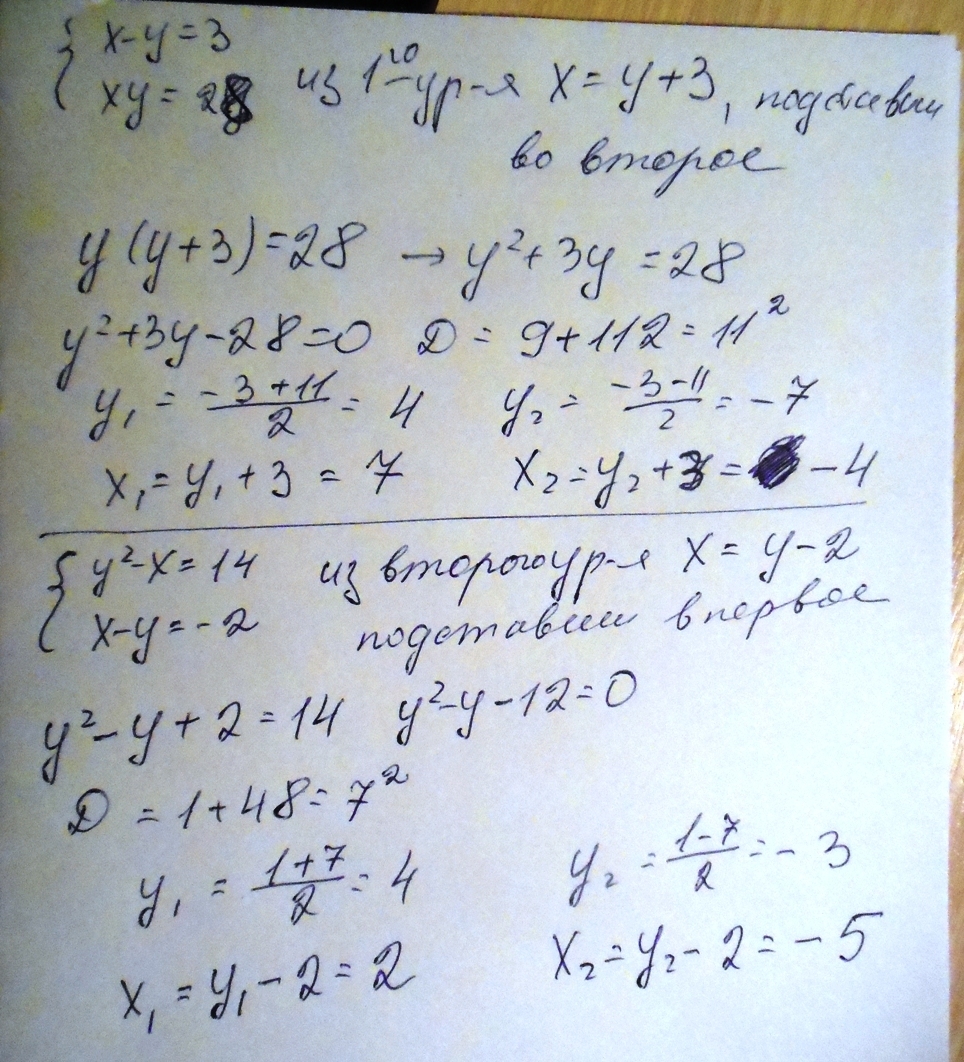 { x-y=3
xy=28 из 1-го ур-я x=y+3, подставим
во второе
y(y+3)=28 → y²+3y=28
y²+3y-28=0 D = 9+112=11²
y₁ = (-3+11)/2 = 4 y₂ = (-3-11)/2 = -7
x₁=y₁+3=7 x₂=y₂+3= -4
{ y²-x=14 из второго ур-я x=y-2
x-y=-2 подставим в первое
y²-y+2=14 y²-y-12=0
D = 1+48=7²
y₁ = (1+7)/2 = 4 y₂ = (1-7)/2 = -3
x₁=y₁-2=2 x₂=y₂-2=-5